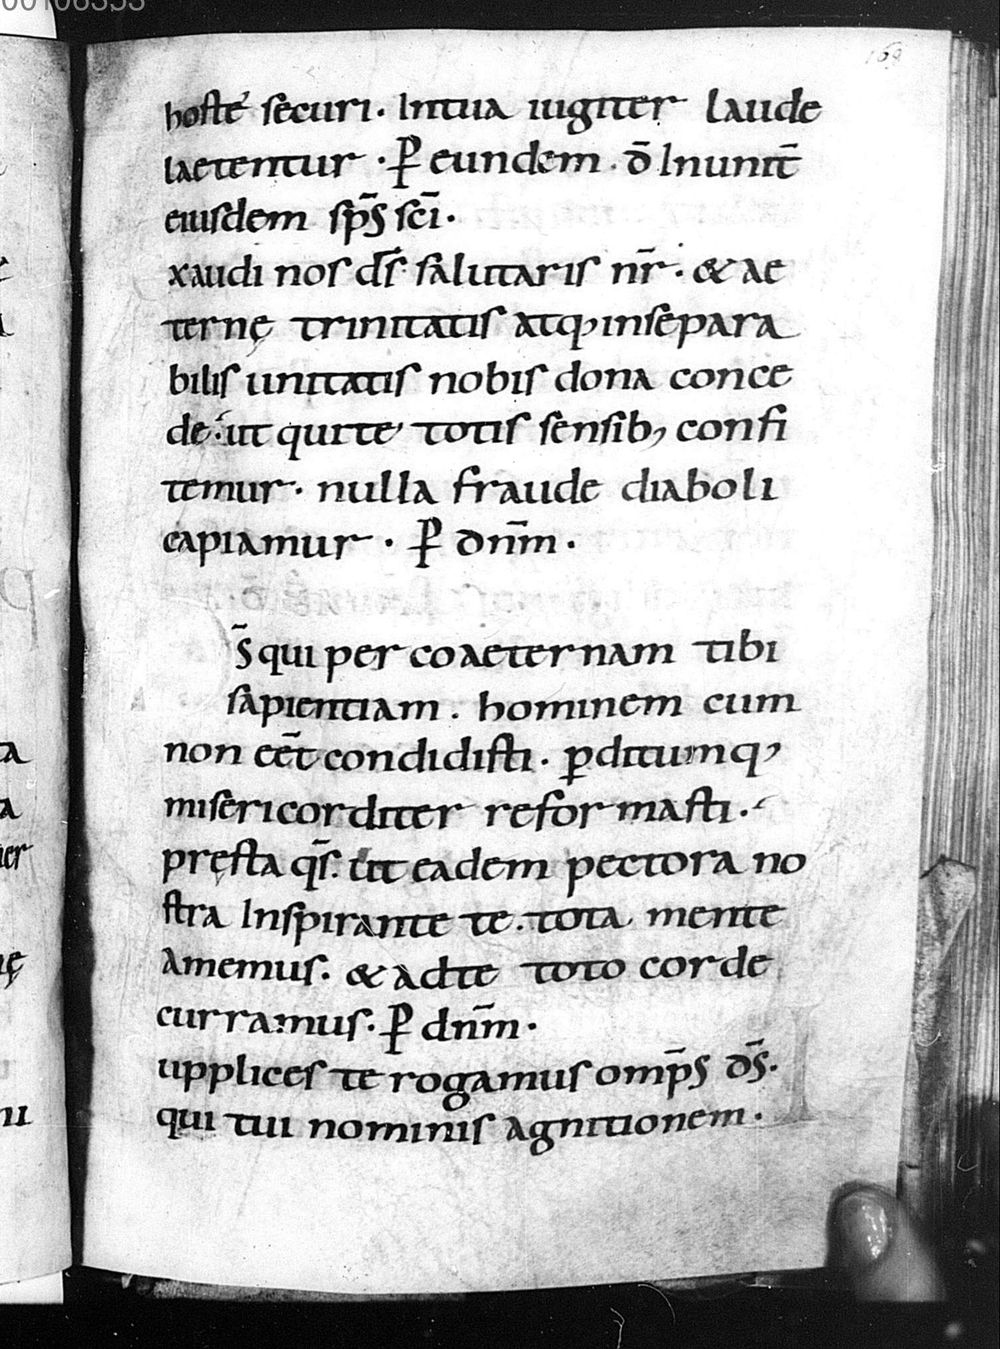 00106353
169
hoste securi. Intua iugiter laude
laetentur. P̄ eundem. d̄ Inunit̄
eiusdem sp̄s sc̄i.
xaudi nos d̄s salutaris nr̄. & ae
ternę trinitatis atq; insepara
bilis unitatis nobis dona conce
de. ut qui te totis sensib; confi
temur. nulla fraude diaboli
capiamur. P̄ dnm̄.
S̄ qui per coaeternam tibi
sapientiam. hominem cum
non eet̄ condidisti. p̄ditumq;
misericorditer reformasti.
pręsta qs̄. ut eadem pectora no
stra Inspirante te. tota mente
amemus. & adte toto corde
curramus. P̄ dnm̄.
upplices te rogamus omp̄s ds̄.
qui tui nominis agnitionem.